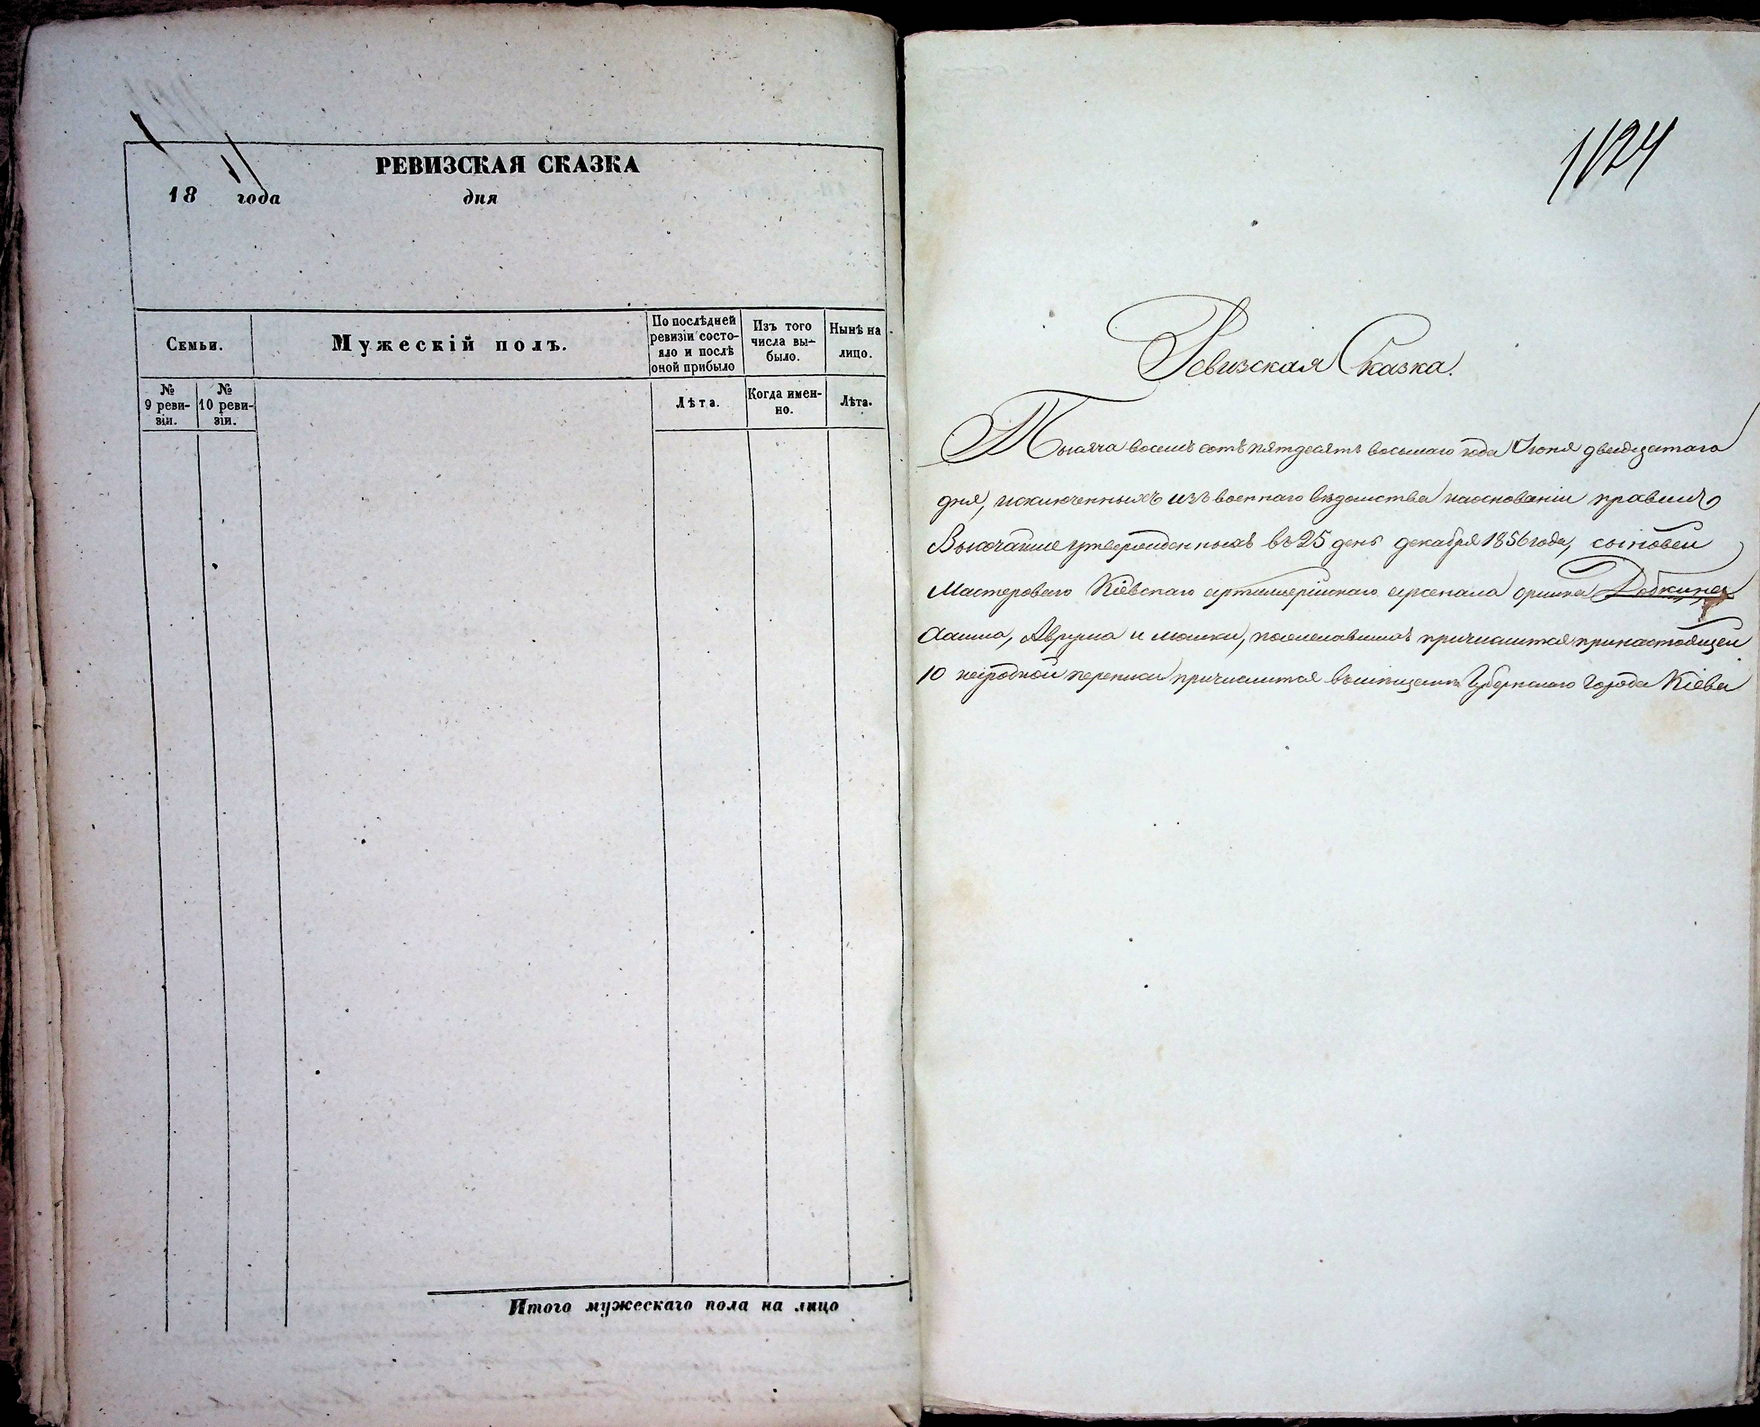 РЕВИЗСКАЯ СКАЗКА
18 года дня
Семьи.
Мужескій полъ.
По послѣдней
ревизіи состо-
яло и послѣ
оной прибыло
Изъ того
числа вы-
было.
Нынѣ на
лицо.
№
9 реви-
зіи.
№
10 реви-
зіи.
Лѣта.
Когда имен-
но.
Лѣта.
Итого мужескаго пола на лицо
1124
Ревизская Сказка.
Тысяча восемь сотъ пятдесятъ восьмаго года Июня двадцатаго
дня, исключенныхъ изъ военнаго вѣдомства наосновании правилъ
Высочайше утвержденныхъ въ 25 день декабря 1856 года, сыновей
Мастероваго Кіевскаго артиллерійскаго арсенала Добкина
Аврума и мошки, пожелавшихъ причислится принастоящей
10 народной переписи причислится вмещане Губернскаго Города Кіева